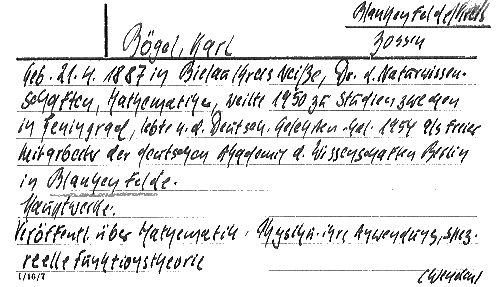 Blankenfelde/Kreis
Zossen
Bögel, Karl
Geb. 21.4. 1887 in Bielau Kreis Neiße, Dr. d. Naturwissen-
schaften, Mathematiker, weilte 1950 zu Studienzwecken
in Leningrad, lebte n. d. Deutsch. Gelehrten Kal. 1954 als freier
Mitarbeiter der deutschen Akademie d. Wissenschaften Berlin
in Blankenfelde.
Hauptwerke.
Veröffentl. über Mathematik, Physik u. ihre Anwendung, spez.
reelle Funktionstheorie
(wenden)